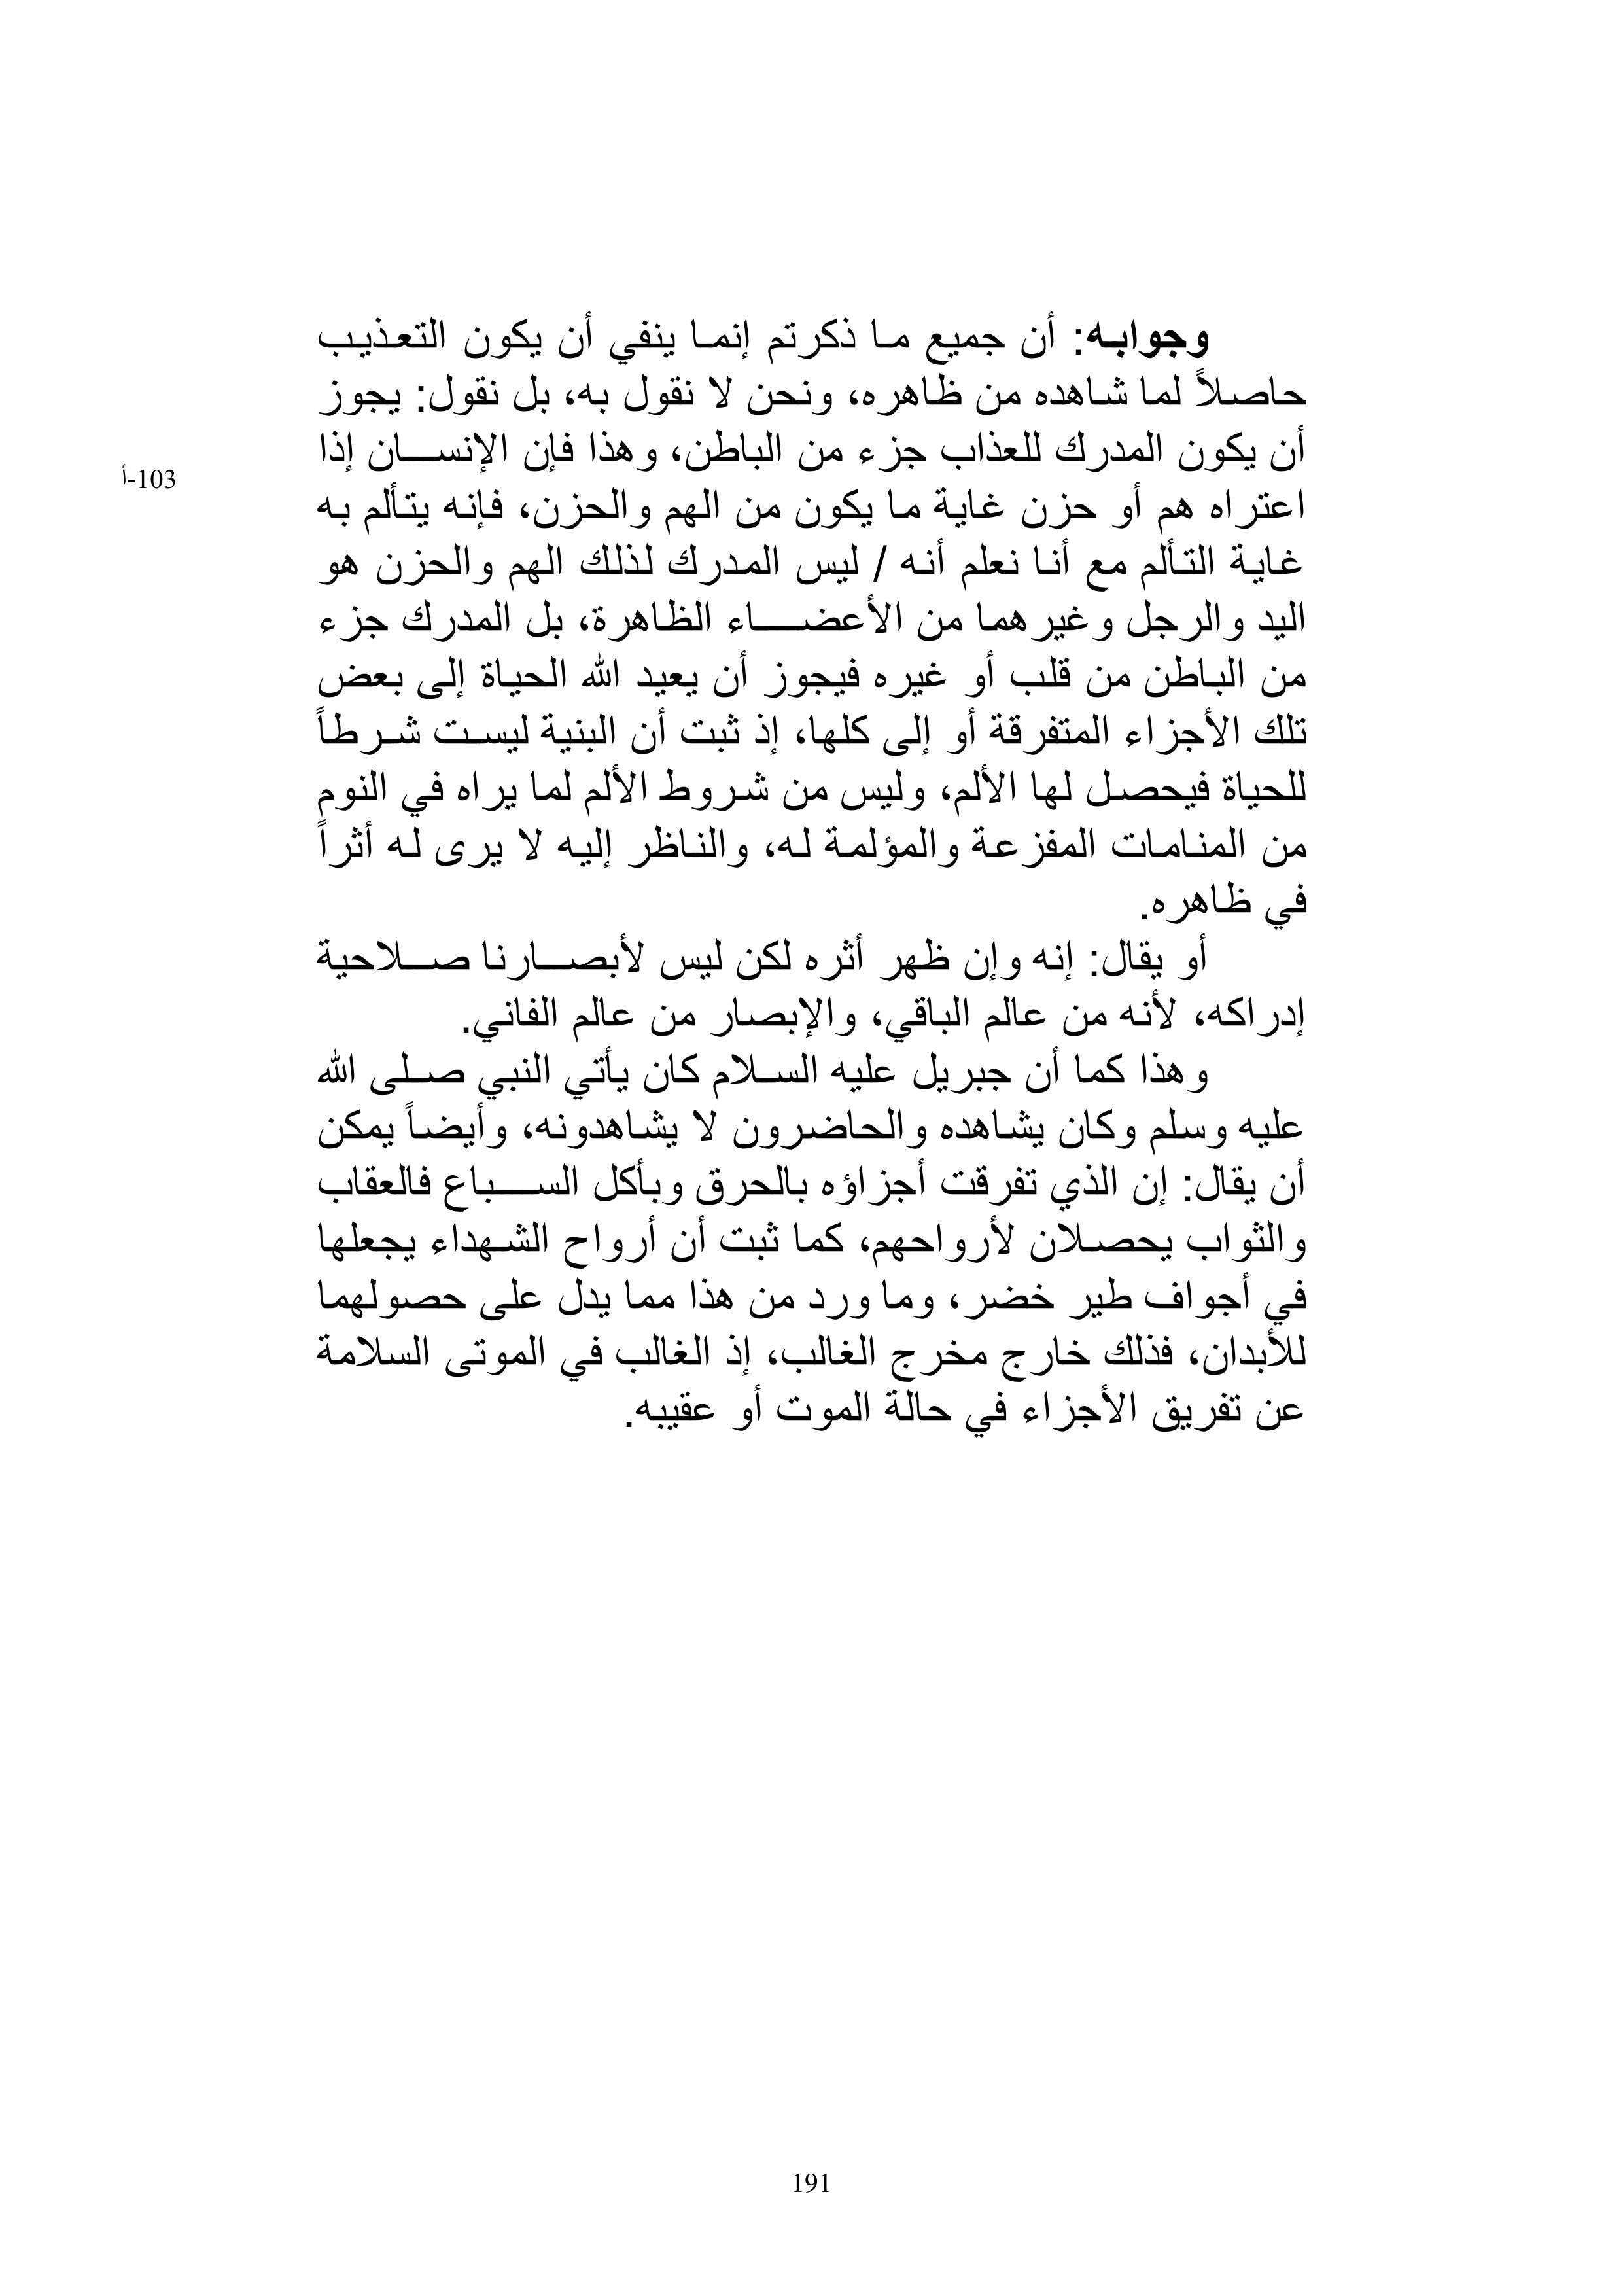 وجوابه: أن جميع ما ذكرتم إنما ينفي أن يكون التعذيب
حاصلاً لما شاهده من ظاهره، ونحن لا نقول به، بل نقول: يجوز
أن يكون المدرك للعذاب جزء من الباطن، وهذا فإن الإنسان إذا
103-أ
اعتراه هم أو حزن غاية ما يكون من الهم والحزن، فإنه يتألم به
غاية التألم مع أنا نعلم أنه / ليس المدرك لذلك الهم والحزن هو
اليد والرجل وغيرهما من الأعضاء الظاهرة، بل المدرك جزء
من الباطن من قلب أو غيره فيجوز أن يعيد الله الحياة إلى بعض
تلك الأجزاء المتفرقة أو إلى كلها، إذ ثبت أن البنية ليست شرطاً
للحياة فيحصل لها الألم، وليس من شروط الألم لما يراه في النوم
من المنامات المفزعة والمؤلمة له، والناظر إليه لا يرى له أثراً
في ظاهره.
أو يقال: إنه وإن ظهر أثره لكن ليس لأبصارنا صلاحية
إدراكه، لأنه من عالم الباقي، والإبصار من عالم الفاني.
وهذا كما أن جبريل عليه السلام كان يأتي النبي صلى الله
عليه وسلم وكان يشاهده والحاضرون لا يشاهدونه، وأيضاً يمكن
أن يقال: إن الذي تفرقت أجزاؤه بالحرق وبأكل السباع فالعقاب
والثواب يحصلان لأرواحهم، كما ثبت أن أرواح الشهداء يجعلها
في أجواف طير خضر، وما ورد من هذا مما يدل على حصولهما
للأبدان، فذلك خارج مخرج الغالب، إذ الغالب في الموتى السلامة
عن تفريق الأجزاء في حالة الموت أو عقيبه.
191